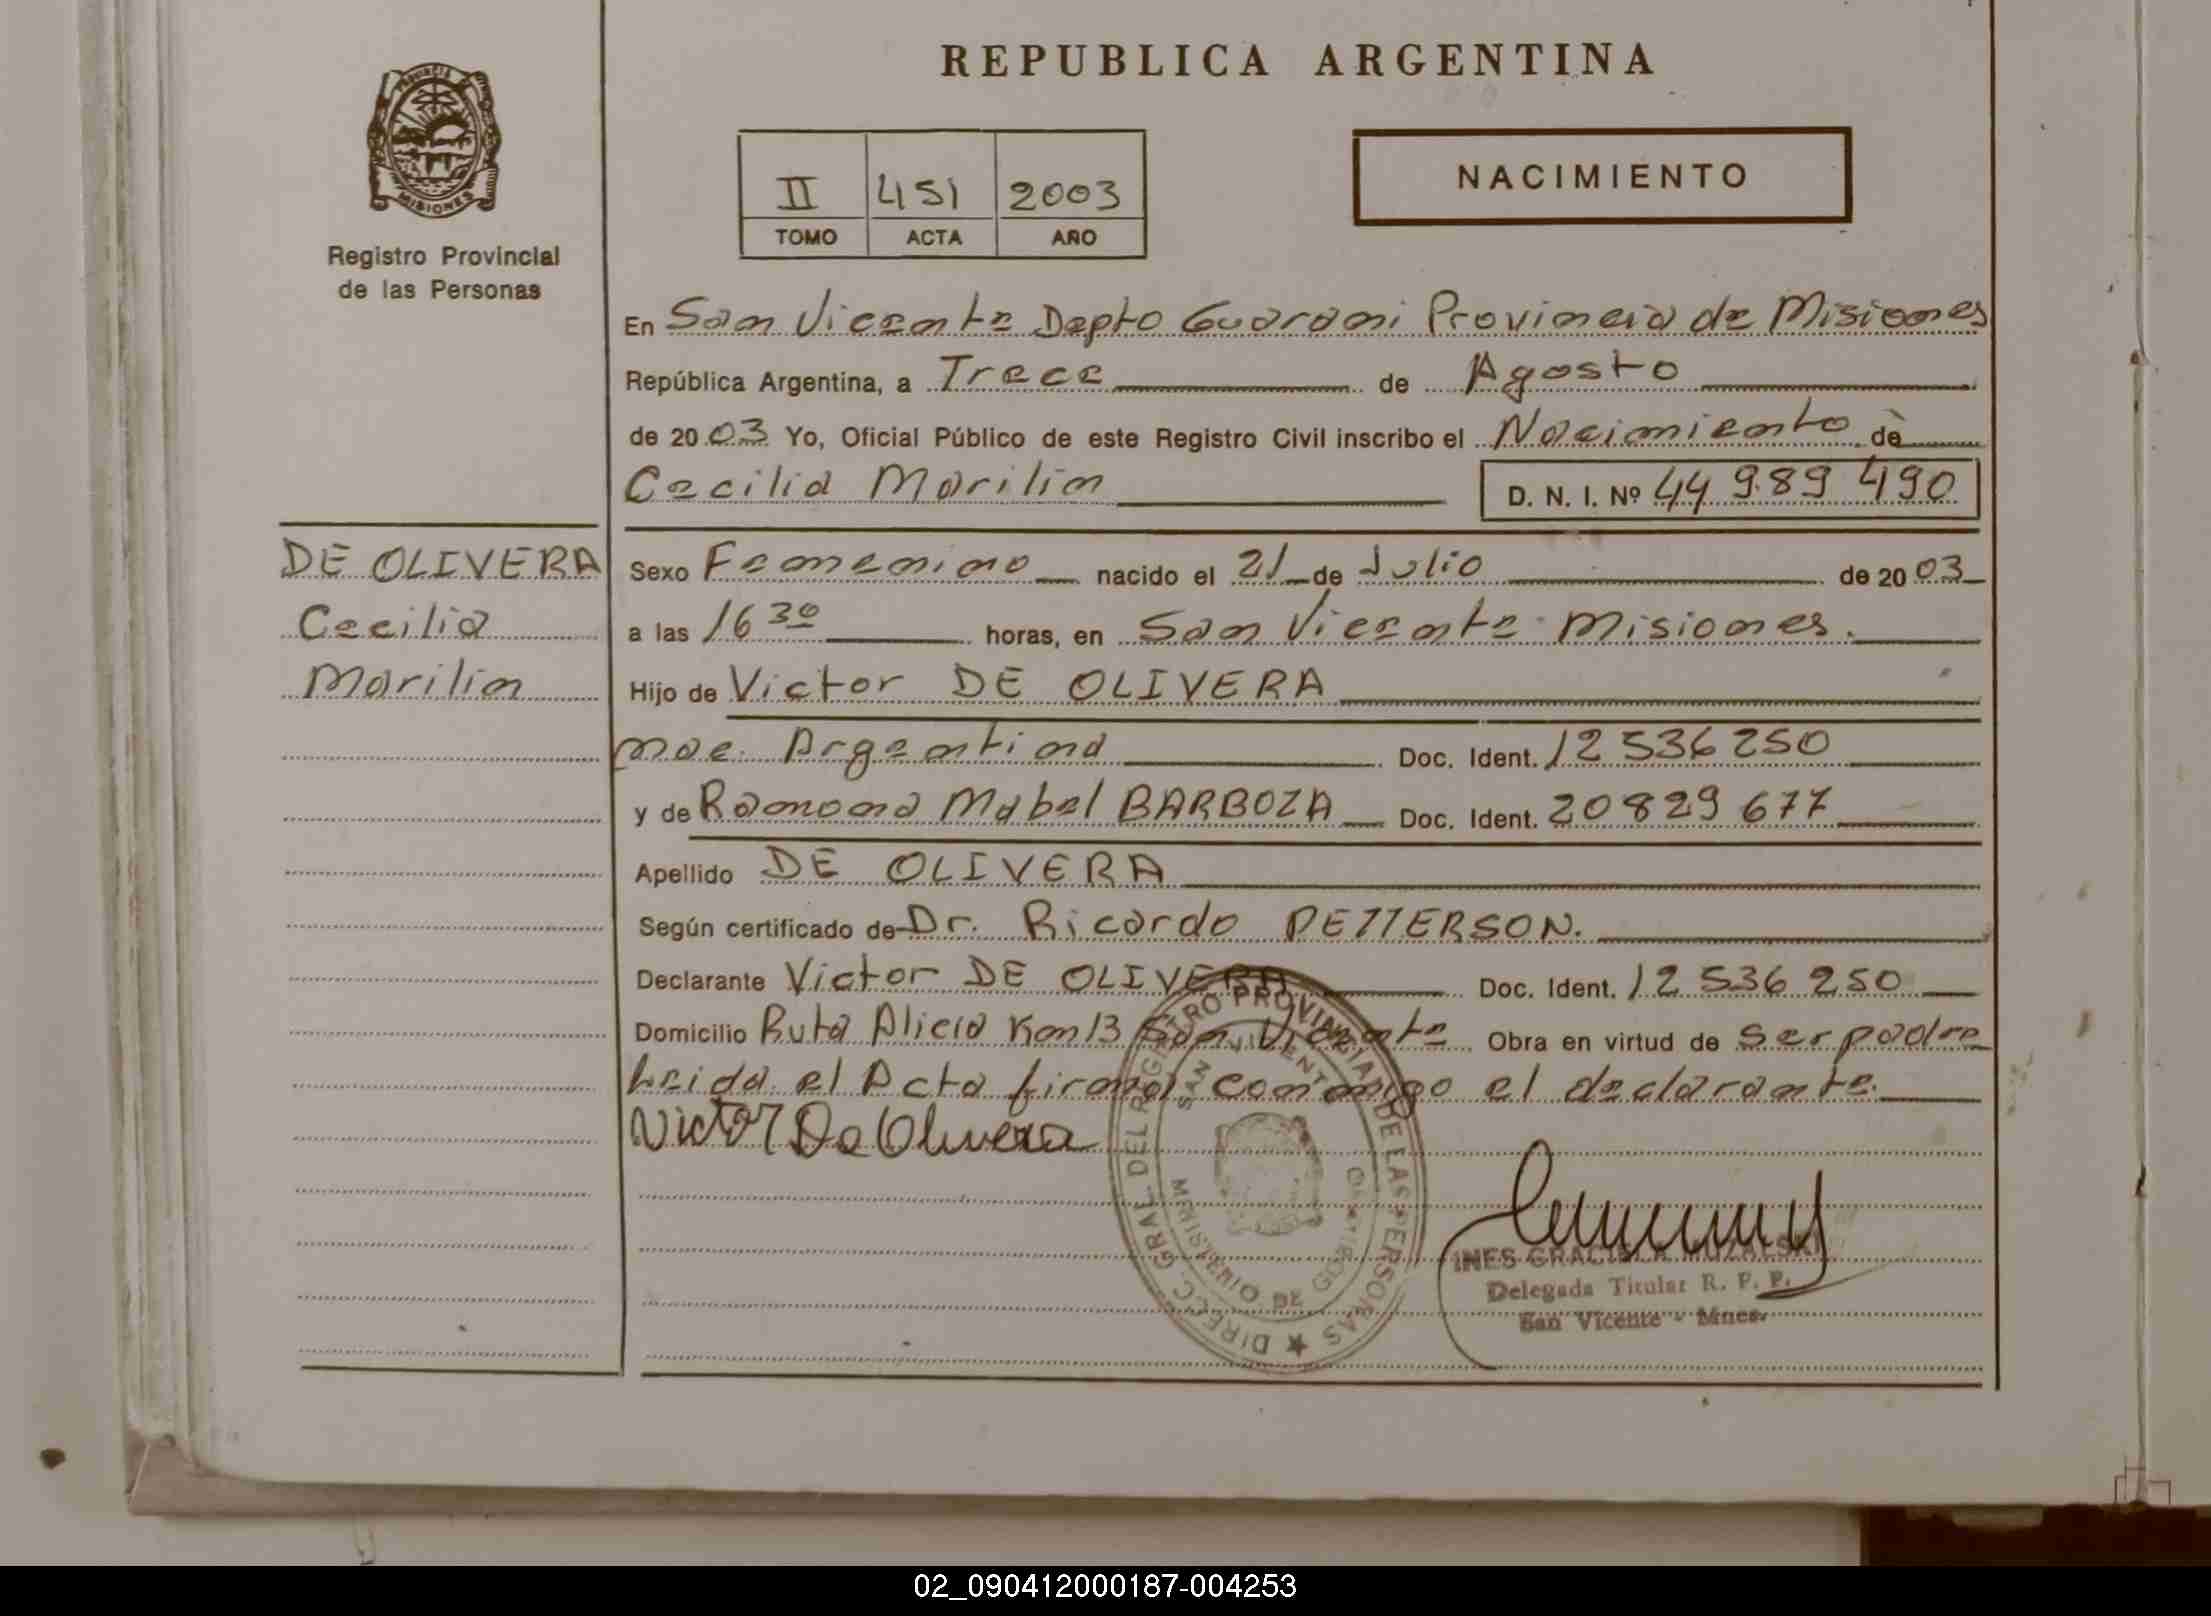 REPUBLICA ARGENTINA
PROVINCIA
MISIONES
Registro Provincial
de las Personas
II 451 2003
TOMO ACTA AÑO
NACIMIENTO
En San Vicente Depto Guarani Provincia de Misiones
República Argentina, a Trece de Agosto
de 2003 Yo, Oficial Público de este Registro Civil inscribo el Nacimiento de
Cecilia Marilin D. N. I. Nº 44 989 490
DE OLIVERA
Cecilia
Marilin
Sexo Femenino nacido el 21 de Julio de 2003
a las 16 30 horas, en San Vicente Misiones.
Hijo de Victor DE OLIVERA
nac. Argentina Doc. Ident. 12 536 250
y de Ramona Mabel BARBOZA Doc. Ident. 20 829 677
Apellido DE OLIVERA
Según certificado de Dr. Ricardo PETTERSON.
Declarante Victor DE OLIVERA Doc. Ident. 12 536 250
Domicilio Ruta Alicia Km 13 San Vicente Obra en virtud de ser padre
Leida el Acta firma conmigo el declarante.
Victor De Olivera
DIRECC. GRAL. DEL REGISTRO PROVINCIAL DE LAS PERSONAS
SAN VICENTE
MINISTERIO DE GOBIERNO
INES GRACIELA
Delegada Titular R. P. P.
San Vicente - Mnes.
02_090412000187-004253